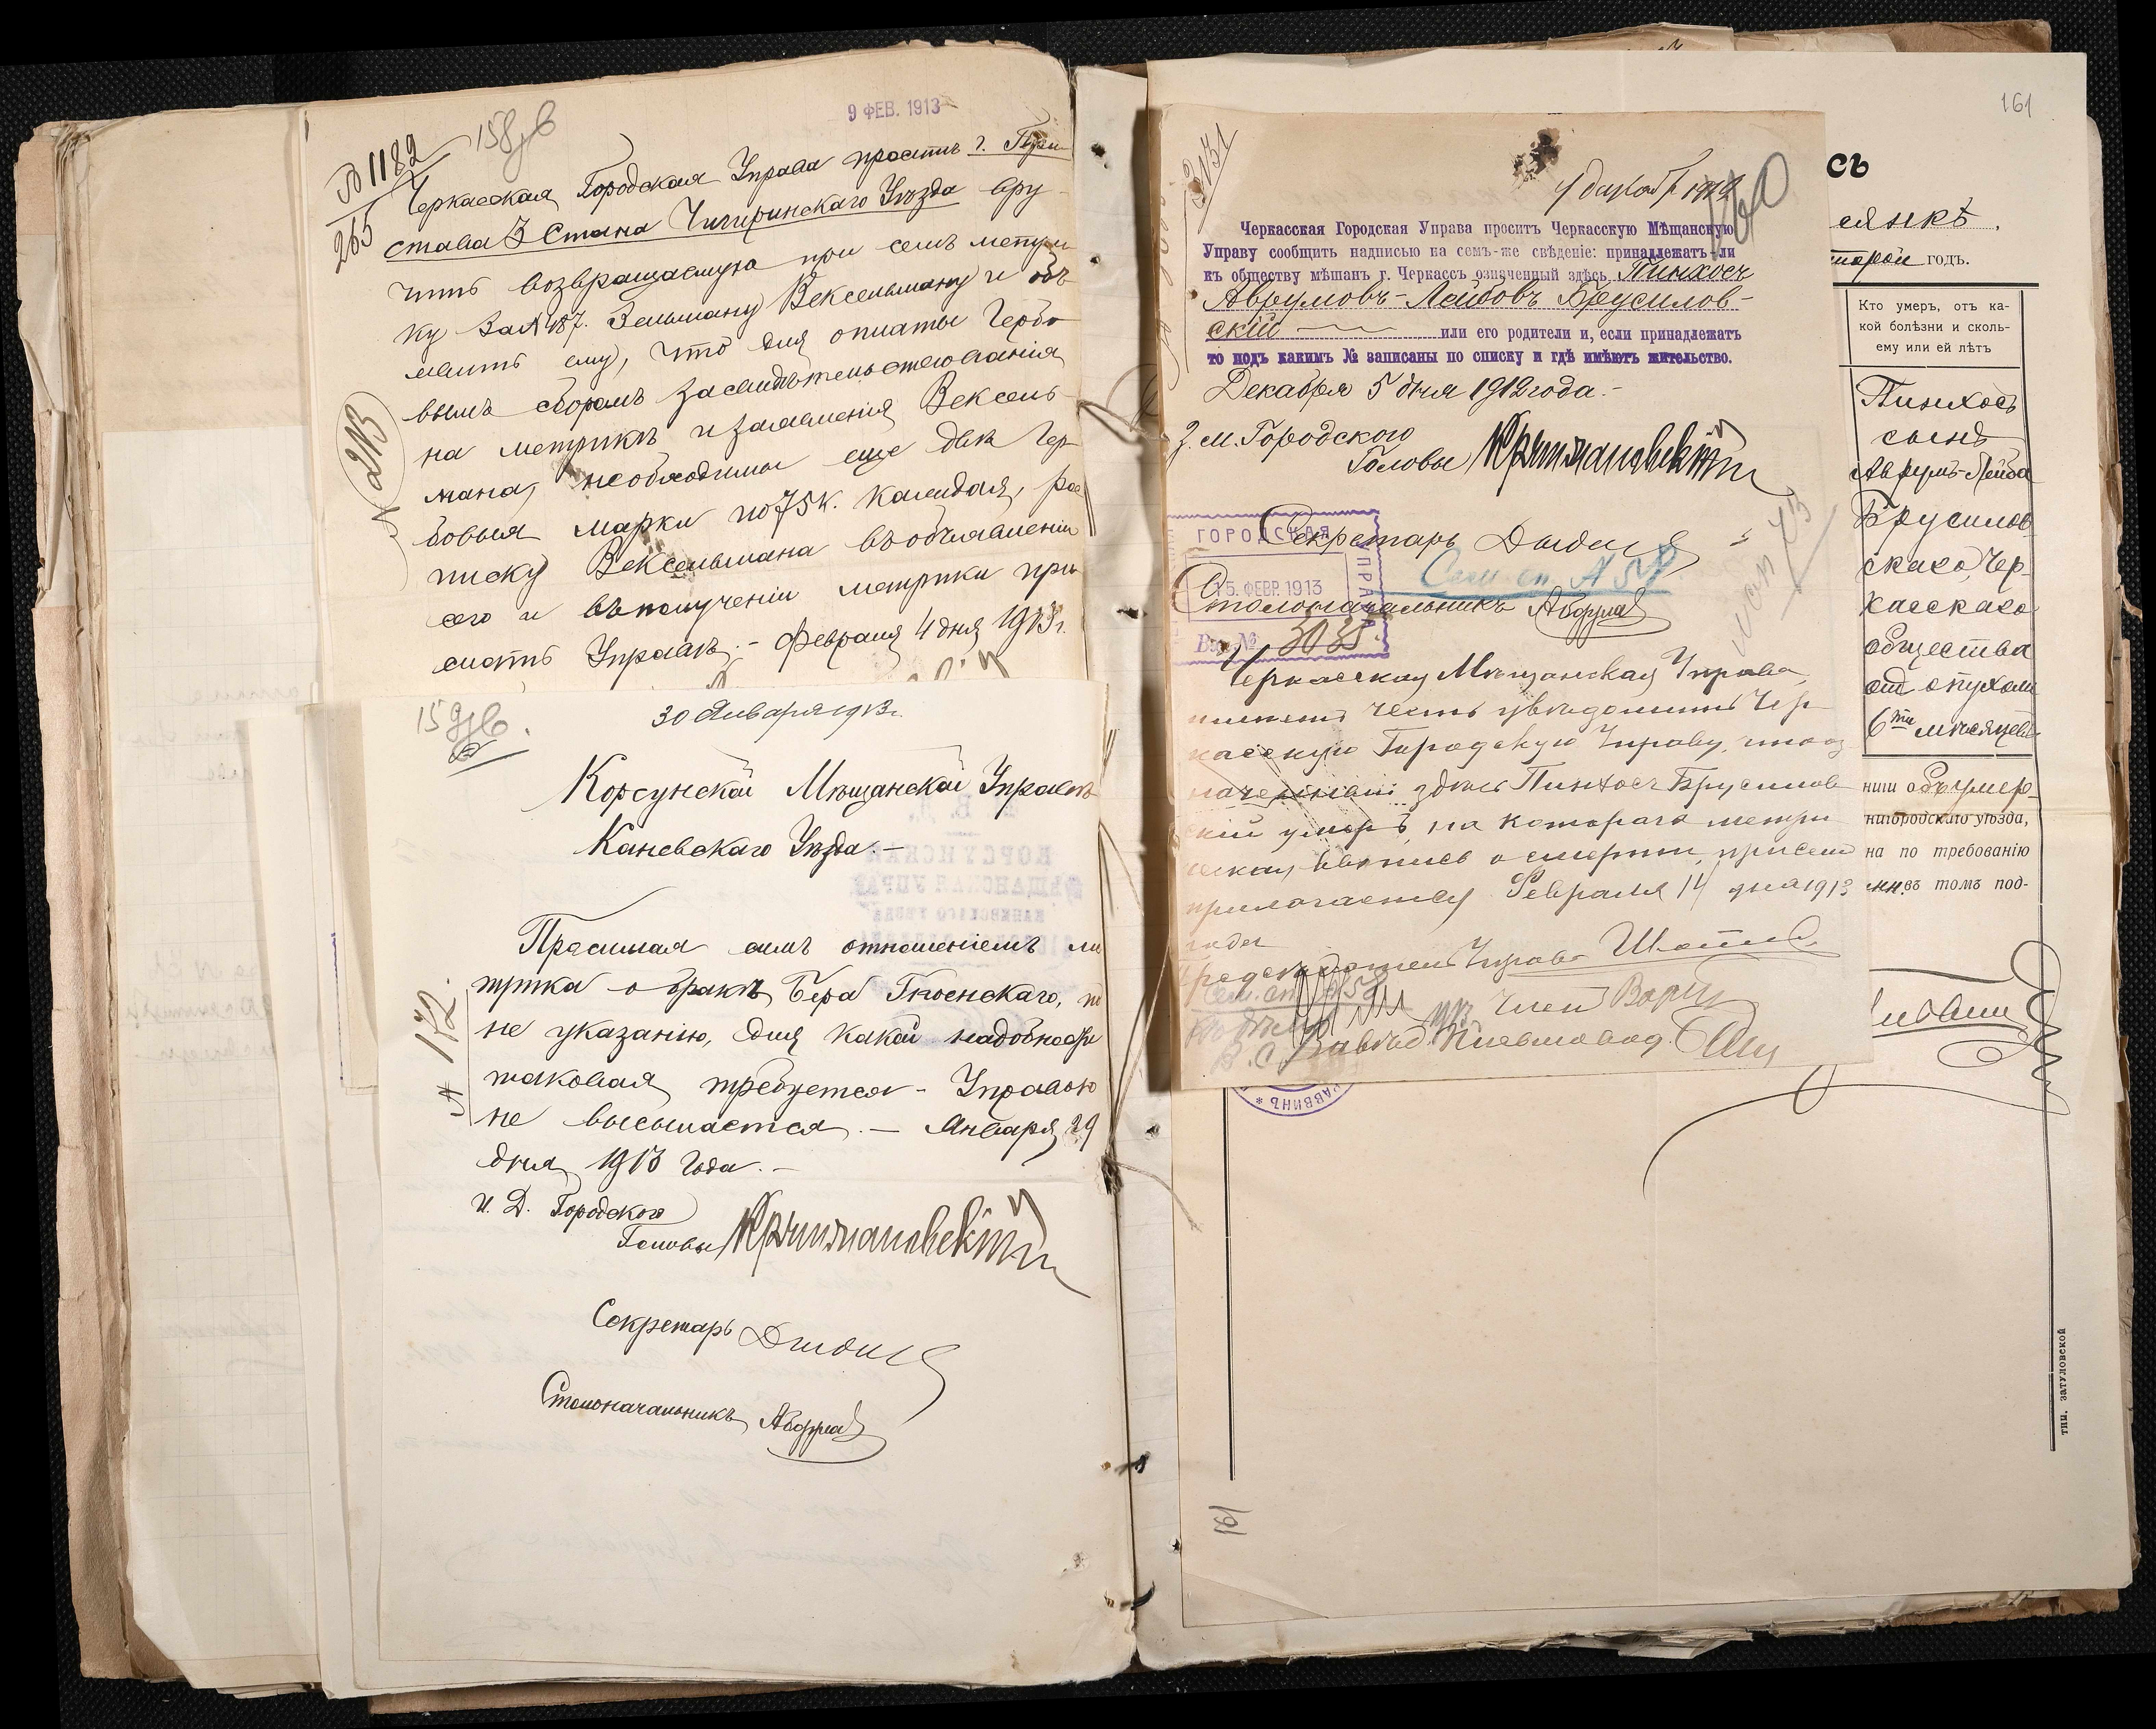 9 ФЕВ. 1913
158 об
№ 1182
265
Черкасская Городская Управа проситъ г. При
става 3 Стана Чигиринскаго Уѣзда вру
чить возвращаемую при семъ метри
ку за № 187. Зельману Вексельману и объ
явить ему, что для оплаты Гербо
вымъ сборомъ засвидѣтельствованія
на метрикѣ и заявленія Вексель
мана, необходимы еще двѣ Гер
бовыя марки по 75 к. каждая, рос
писку Вексельмана въ объявленіи
сего и въ полученіи метрики при
слать Управѣ. - Февраля 4 дня 1913 г.
№ 213
159 об.
30 Января 1913 г.
Корсунской Мѣщанской Управѣ
Каневскаго Уѣзда. -
Просимая симъ отношеніемъ ме
трика о бракѣ Бера
не указанію, для какой надобности
таковая требуется - Управою
не высылается. - Января 29
дня 1913 года. -
№ 172.
И. Д. Городского
Головы
Секретарь
Столоначальникъ
161
160
2131
4 декабр 1912
Черкасская Городская Управа проситъ Черкасскую Мѣщанскую
Управу сообщить надписью на семъ-же свѣдѣніе: принадлежатъ-ли
къ обществу мѣщанъ г. Черкассъ означенный здѣсь Пинхосъ
Аврумовъ-Лейбовъ Брусилов-
скій или его родители и, если принадлежатъ
то подъ какимъ № записаны по списку и гдѣ имѣютъ жительство.
Декабря 5 дня 1912 года. -
З. м. Городского
Головы
Секретарь
ГОРОДСКАЯ УПРАВА
15. ФЕВР. 1913
Вх. № 3035
Столоначальникъ
Черкасская Мѣщанская Управа,
имѣетъ честь увѣдомить Чер
касскую Городскую Управу, что оз
наченный здѣсь Пинхосъ Брусилов
скій умеръ, на котораго метри
ческая выпись о смерти при семъ
прилагается Февраля 14 дня 1913
года
Предсѣдатель Управы
Членъ
Завѣд. Письмовод.
СЬ
янкѣ.
торой годъ.
Кто умеръ, отъ ка-
кой болѣзни и сколь-
ко ему или ей лѣтъ
Пинхосъ
сынъ
Аврумъ-Лейба
Брусилов
скаго, Чер-
касскаго
общества
отъ опухоли
6ти мѣсяцевъ
ниги объ умер-
нигородскаго уѣзда,
на по требованію
въ томъ под-
РАВВИНЪ
161
тип. затуловской